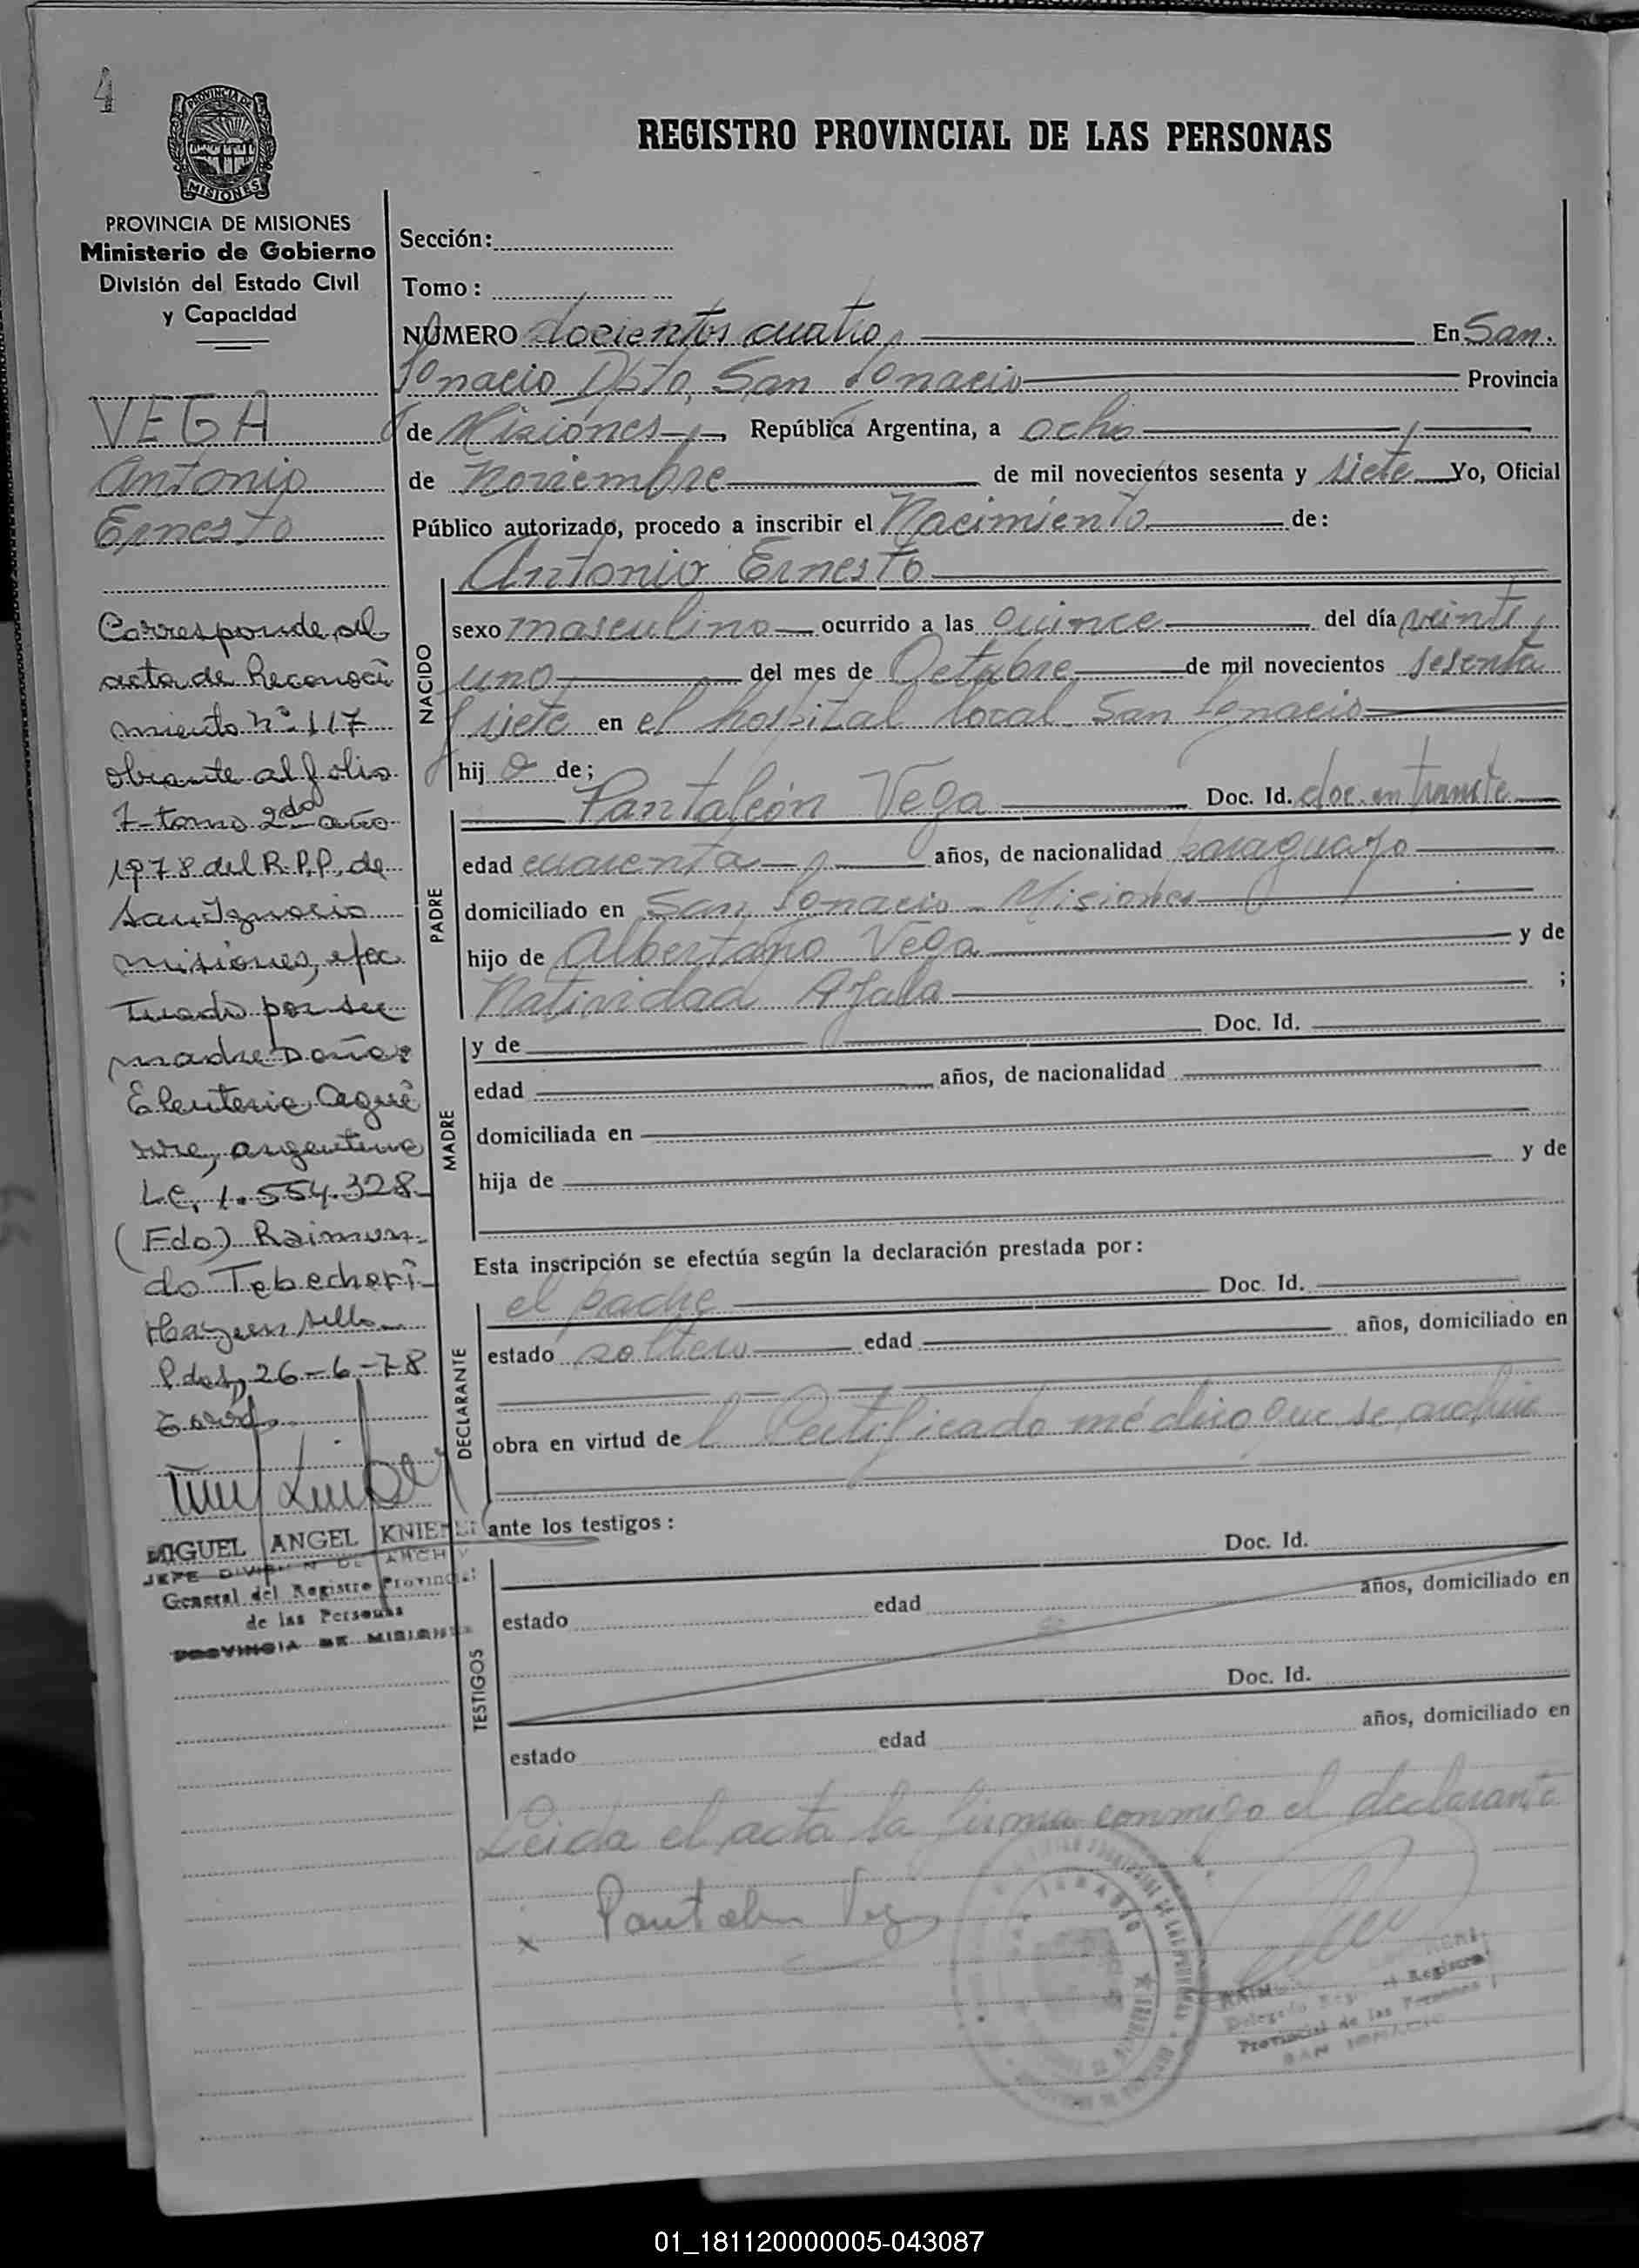 4
PROVINCIA DE
MISIONES
REGISTRO PROVINCIAL DE LAS PERSONAS
PROVINCIA DE MISIONES
Ministerio de Gobierno
División del Estado Civil
y Capacidad
VEGA
Antonio
Ernesto
Corresponde al
acta de Reconoci
miento n° 117
obrante al folio
7 tomo 2do año
1978 del R.P.P. de
San Ignacio
misiones, efec
tuado por su
madre Doña:
Eleuteria Agui
rre, argentina
L.C. 1.554.328
(Fdo) Raimun-
do Tebecheri
Hay un sello
Pdas, 26-6-78
MIGUEL ANGEL
JEFE DIVISION DE ARCHIV
General del Registro Provincial
de las Personas
PROVINCIA DE MISIONES
Sección:
Tomo:
NÚMERO docientos cuatro En San
Ignacio Dpto. San Ignacio Provincia
de Misiones, República Argentina, a ocho
de Noviembre de mil novecientos sesenta y siete Yo, Oficial
Público autorizado, procedo a inscribir el Nacimiento de:
Antonio Ernesto
NACIDO
sexo masculino ocurrido a las quince del día veinti
uno del mes de Octubre de mil novecientos sesenta
y siete en el hospital local San Ignacio
hij o de;
PADRE
Pantaleón Vega Doc. Id. doc. en tramite
edad cuarenta años, de nacionalidad paraguayo
domiciliado en San Ignacio - Misiones
hijo de Albertano Vega y de
Natividad Ayala ;
MADRE
y de Doc. Id.
edad años, de nacionalidad
domiciliada en
hija de y de
Esta inscripción se efectúa según la declaración prestada por:
DECLARANTE
el padre Doc. Id.
estado soltero edad años, domiciliado en
obra en virtud de l Certificado médico que se archiva
ante los testigos:
TESTIGOS
Doc. Id.
estado edad años, domiciliado en
Doc. Id.
estado edad años, domiciliado en
Leida el acta la firma conmigo el declarante
x Pantaleon Vega
Provincial de las Personas
SAN IGNACIO
01_181120000005-043087